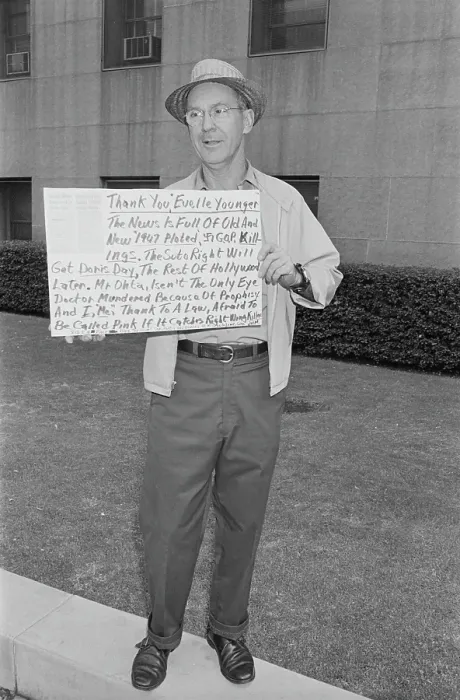 Thank You, Evelle Younger
The News Is Full Of Old And
New '1947 Ploted, 5, GOP, Kill-
ings. The Suto Right Will
Get Doris Day, The Rest Of Hollywood
Later. Mr Ohta, Isen't The Only Eye
Doctor Murdered Because Of Prophisy
And I, Me; Thank To A Law, Afraid To
Be Called Pink If It Catches Right Wing Killers